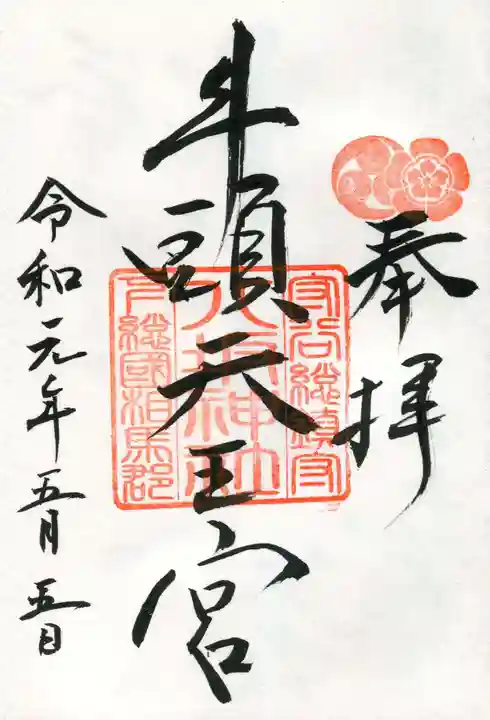 奉拝
牛頭天王宮
守谷総鎮守
八坂神社
下総國相馬郡
令和元年五月五日